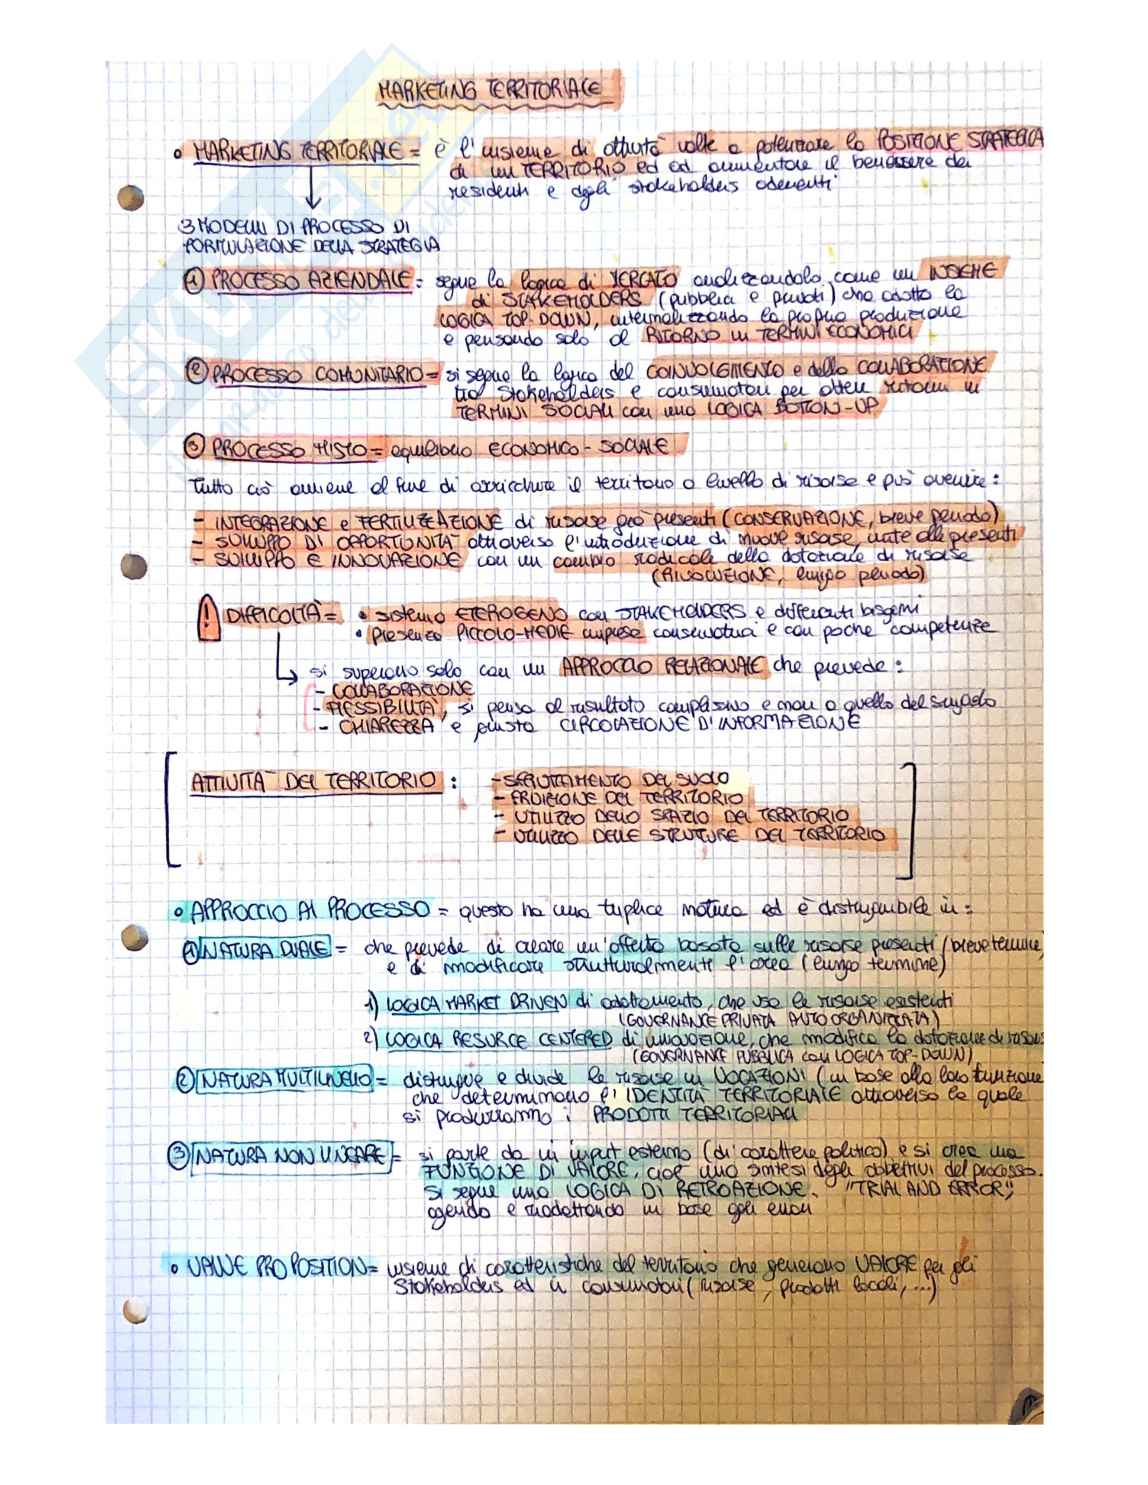 MARKETING TERRITORIALE
• MARKETING TERRITORIALE = è l'insieme di attività volte a potenziare la POSIZIONE STRATEGICA
di un TERRITORIO ed ad aumentare il benessere dei
residenti e degli stakeholders aderenti
3 MODELLI DI PROCESSO DI
FORMULAZIONE DELLA STRATEGIA
① PROCESSO AZIENDALE = segue la logica di MERCATO analizzandolo come un INSIEME
di STAKEHOLDERS (pubblici e privati) che adotta la
LOGICA TOP-DOWN, internalizzando la propria produzione
e pensando solo al RITORNO in TERMINI ECONOMICI
② PROCESSO COMUNITARIO = si segue la logica del COINVOLGIMENTO e della COLLABORAZIONE
tra Stakeholders e consumatori per ottene ritorni in
TERMINI SOCIALI con una LOGICA BOTTON-UP
③ PROCESSO MISTO = equilibrio ECONOMICO - SOCIALE
Tutto ciò avviene al fine di arricchire il territorio a livello di risorse e può avvenire:
- INTEGRAZIONE e FERTILIZZAZIONE di risorse già presenti (CONSERVAZIONE, breve periodo)
- SVILUPPO DI OPPORTUNITÀ attraverso l'introduzione di nuove risorse, unite alle presenti
- SVILUPPO E INNOVAZIONE con un cambio radicale della dotazione di risorse
(RIVOLUZIONE, lungo periodo)
! DIFFICOLTÀ = • sistema ETEROGENEO con STAKEHOLDERS e differenti bisogni
• presenza PICCOLO-MEDIE imprese conservatrici e con poche competenze
si superano solo con un APPROCCIO RELAZIONALE che prevede:
- COLLABORAZIONE
- FLESSIBILITÀ, si pensa al risultato complessivo e non a quello del singolo
- CHIAREZZA e giusta CIRCOLAZIONE D'INFORMAZIONE
ATTIVITÀ DEL TERRITORIO: - SFRUTTAMENTO DEL SUOLO
- FRUIZIONE DEL TERRITORIO
- UTILIZZO DELLO SPAZIO DEL TERRITORIO
- UTILIZZO DELLE STRUTURE DEL TERRITORIO
• APPROCCIO AI PROCESSO = questo ha una triplice natura ed è distinguibile in:
① NATURA DUALE = che prevede di creare un'offerta basata sulle risorse presenti (breve termine)
e di modificare strutturalmente l'area (lungo termine)
1) LOGICA MARKET DRIVEN di adattamento, che usa le risorse esistenti
(GOVERNANCE PRIVATA AUTORGANIZZATA)
2) LOGICA RESURCE CENTERED di innovazione, che modifica la dotazione di risorse
(GOVERNANCE PUBBLICA con LOGICA TOP-DOWN)
② NATURA MULTILIVELLO = distingue e divide le risorse in VOCAZIONI (in base alla loro funzione
che determinano l'IDENTITÀ TERRITORIALE attraverso la quale
si produrranno i PRODOTTI TERRITORIALI
③ NATURA NON LINEARE = si parte da un input esterno (di carattere politico) e si crea una
FUNZIONE DI VALORE, cioè una sintesi degli obiettivi del processo.
Si segue una LOGICA DI RETROAZIONE. "TRIAL AND ERROR",
agendo e riadattando in base agli errori
• VALUE PROPOSITION = insieme di caratteristiche del territorio che generano VALORE per gli
Stakeholders ed i consumatori (risorse, prodotti locali, ...)